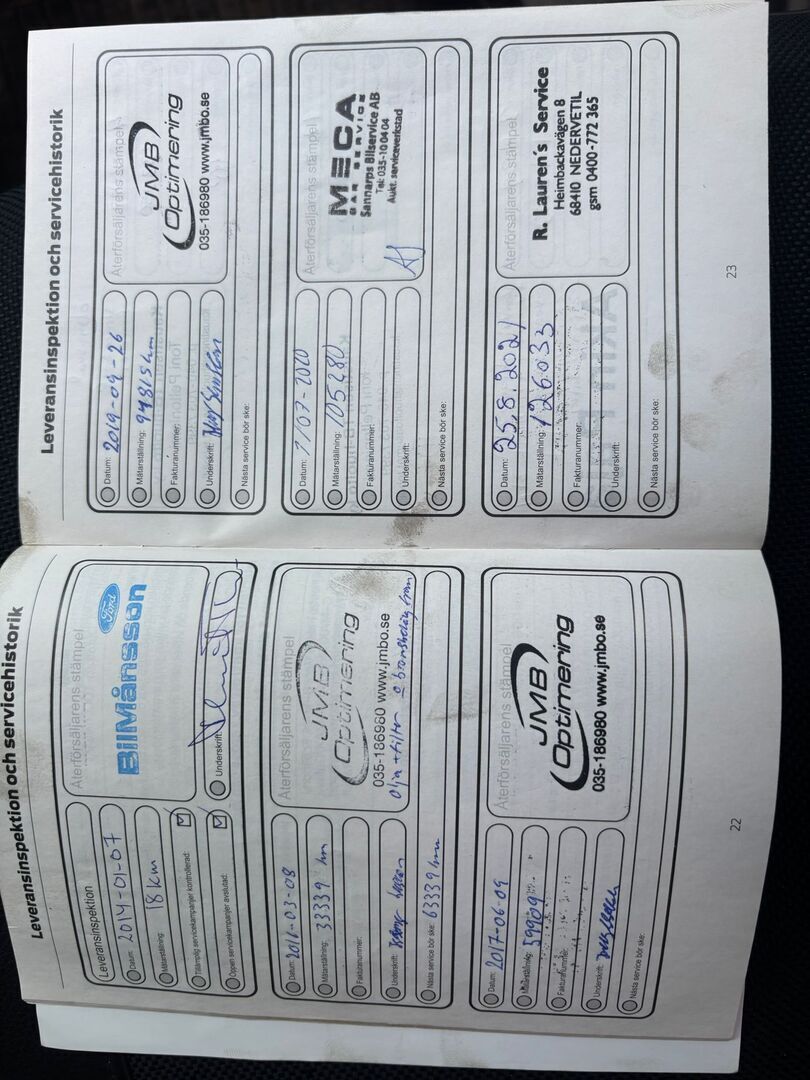 Leveransinspektion och servicehistorik
Leveransinspektion
Datum: 2014-01-07
Mätarställning: 18 km
Tillämplig servicekampanjer kontrollerad:
Öppen servicekampanjer avslutad:
Återförsäljarens stämpel
Ford
BilMånsson
Underskrift:
Datum: 2016-03-08
Mätarställning: 33339 km
Fakturanummer:
Underskrift:
Nästa service bör ske: 63339 km
Återförsäljarens stämpel
JMB
Optimering
035-186980 www.jmbo.se
olja + filter o bränslefilter
Datum: 2017-06-09
Mätarställning: 59909
Fakturanummer:
Underskrift:
Nästa service bör ske:
Återförsäljarens stämpel
JMB
Optimering
035-186980 www.jmbo.se
22
Leveransinspektion och servicehistorik
Datum: 2019-04-26
Mätarställning: 94815 km
Fakturanummer:
Underskrift:
Nästa service bör ske:
Återförsäljarens stämpel
JMB
Optimering
035-186980 www.jmbo.se
Datum: 2/07-2020
Mätarställning: 105280
Fakturanummer:
Underskrift:
Nästa service bör ske:
Återförsäljarens stämpel
MECA
CAR SERVICE
Sannarps Bilservice AB
Tel: 035-10 04 04
Aukt. serviceverkstad
Datum: 25.8.2021
Mätarställning: 126033
Fakturanummer:
Underskrift:
Nästa service bör ske:
Återförsäljarens stämpel
R. Lauren´s Service
Heimbackavägen 8
68410 NEDERVETIL
gsm 0400-772 365
23